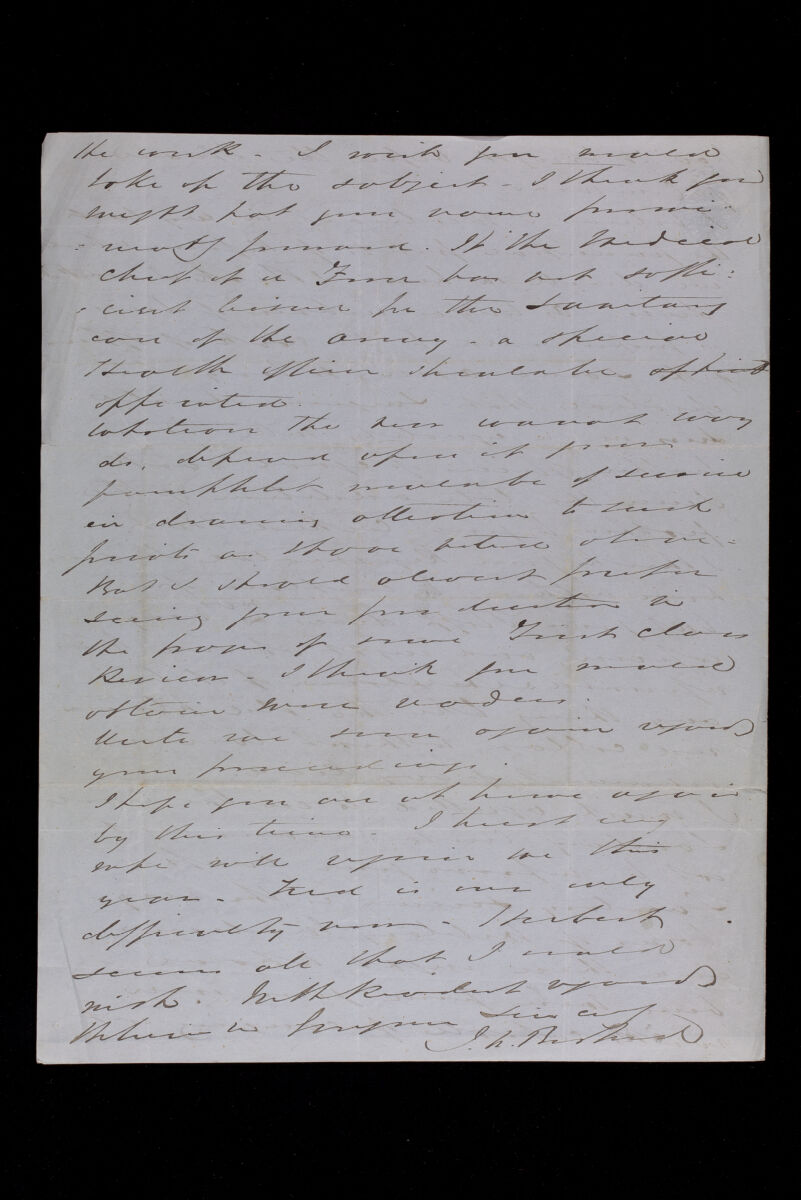 the work - I wish you would
take up the subject - I think you
might put your views promi-
:nently forward. If the Medical
chief of a Force has not suffi:
:cient leisure for the Sanitary
care of the army - a special
Health officer should be
appointed.
Whatever the cannot way
do, depend upon it your
pamphlet would be of service
in drawing attention to such
points as those noted above -
But I should almost prefer
seeing your production in
the pages of some First class
Review - I think you would
obtain more readers.
Write me soon again regards
your proceedings.
I hope you are at home again
by this time - I trust my
wife will rejoin me this
year - Fred is our only
difficulty now - Herbert
seems all that I would
wish. With kindest regards
believe me
Sincerely